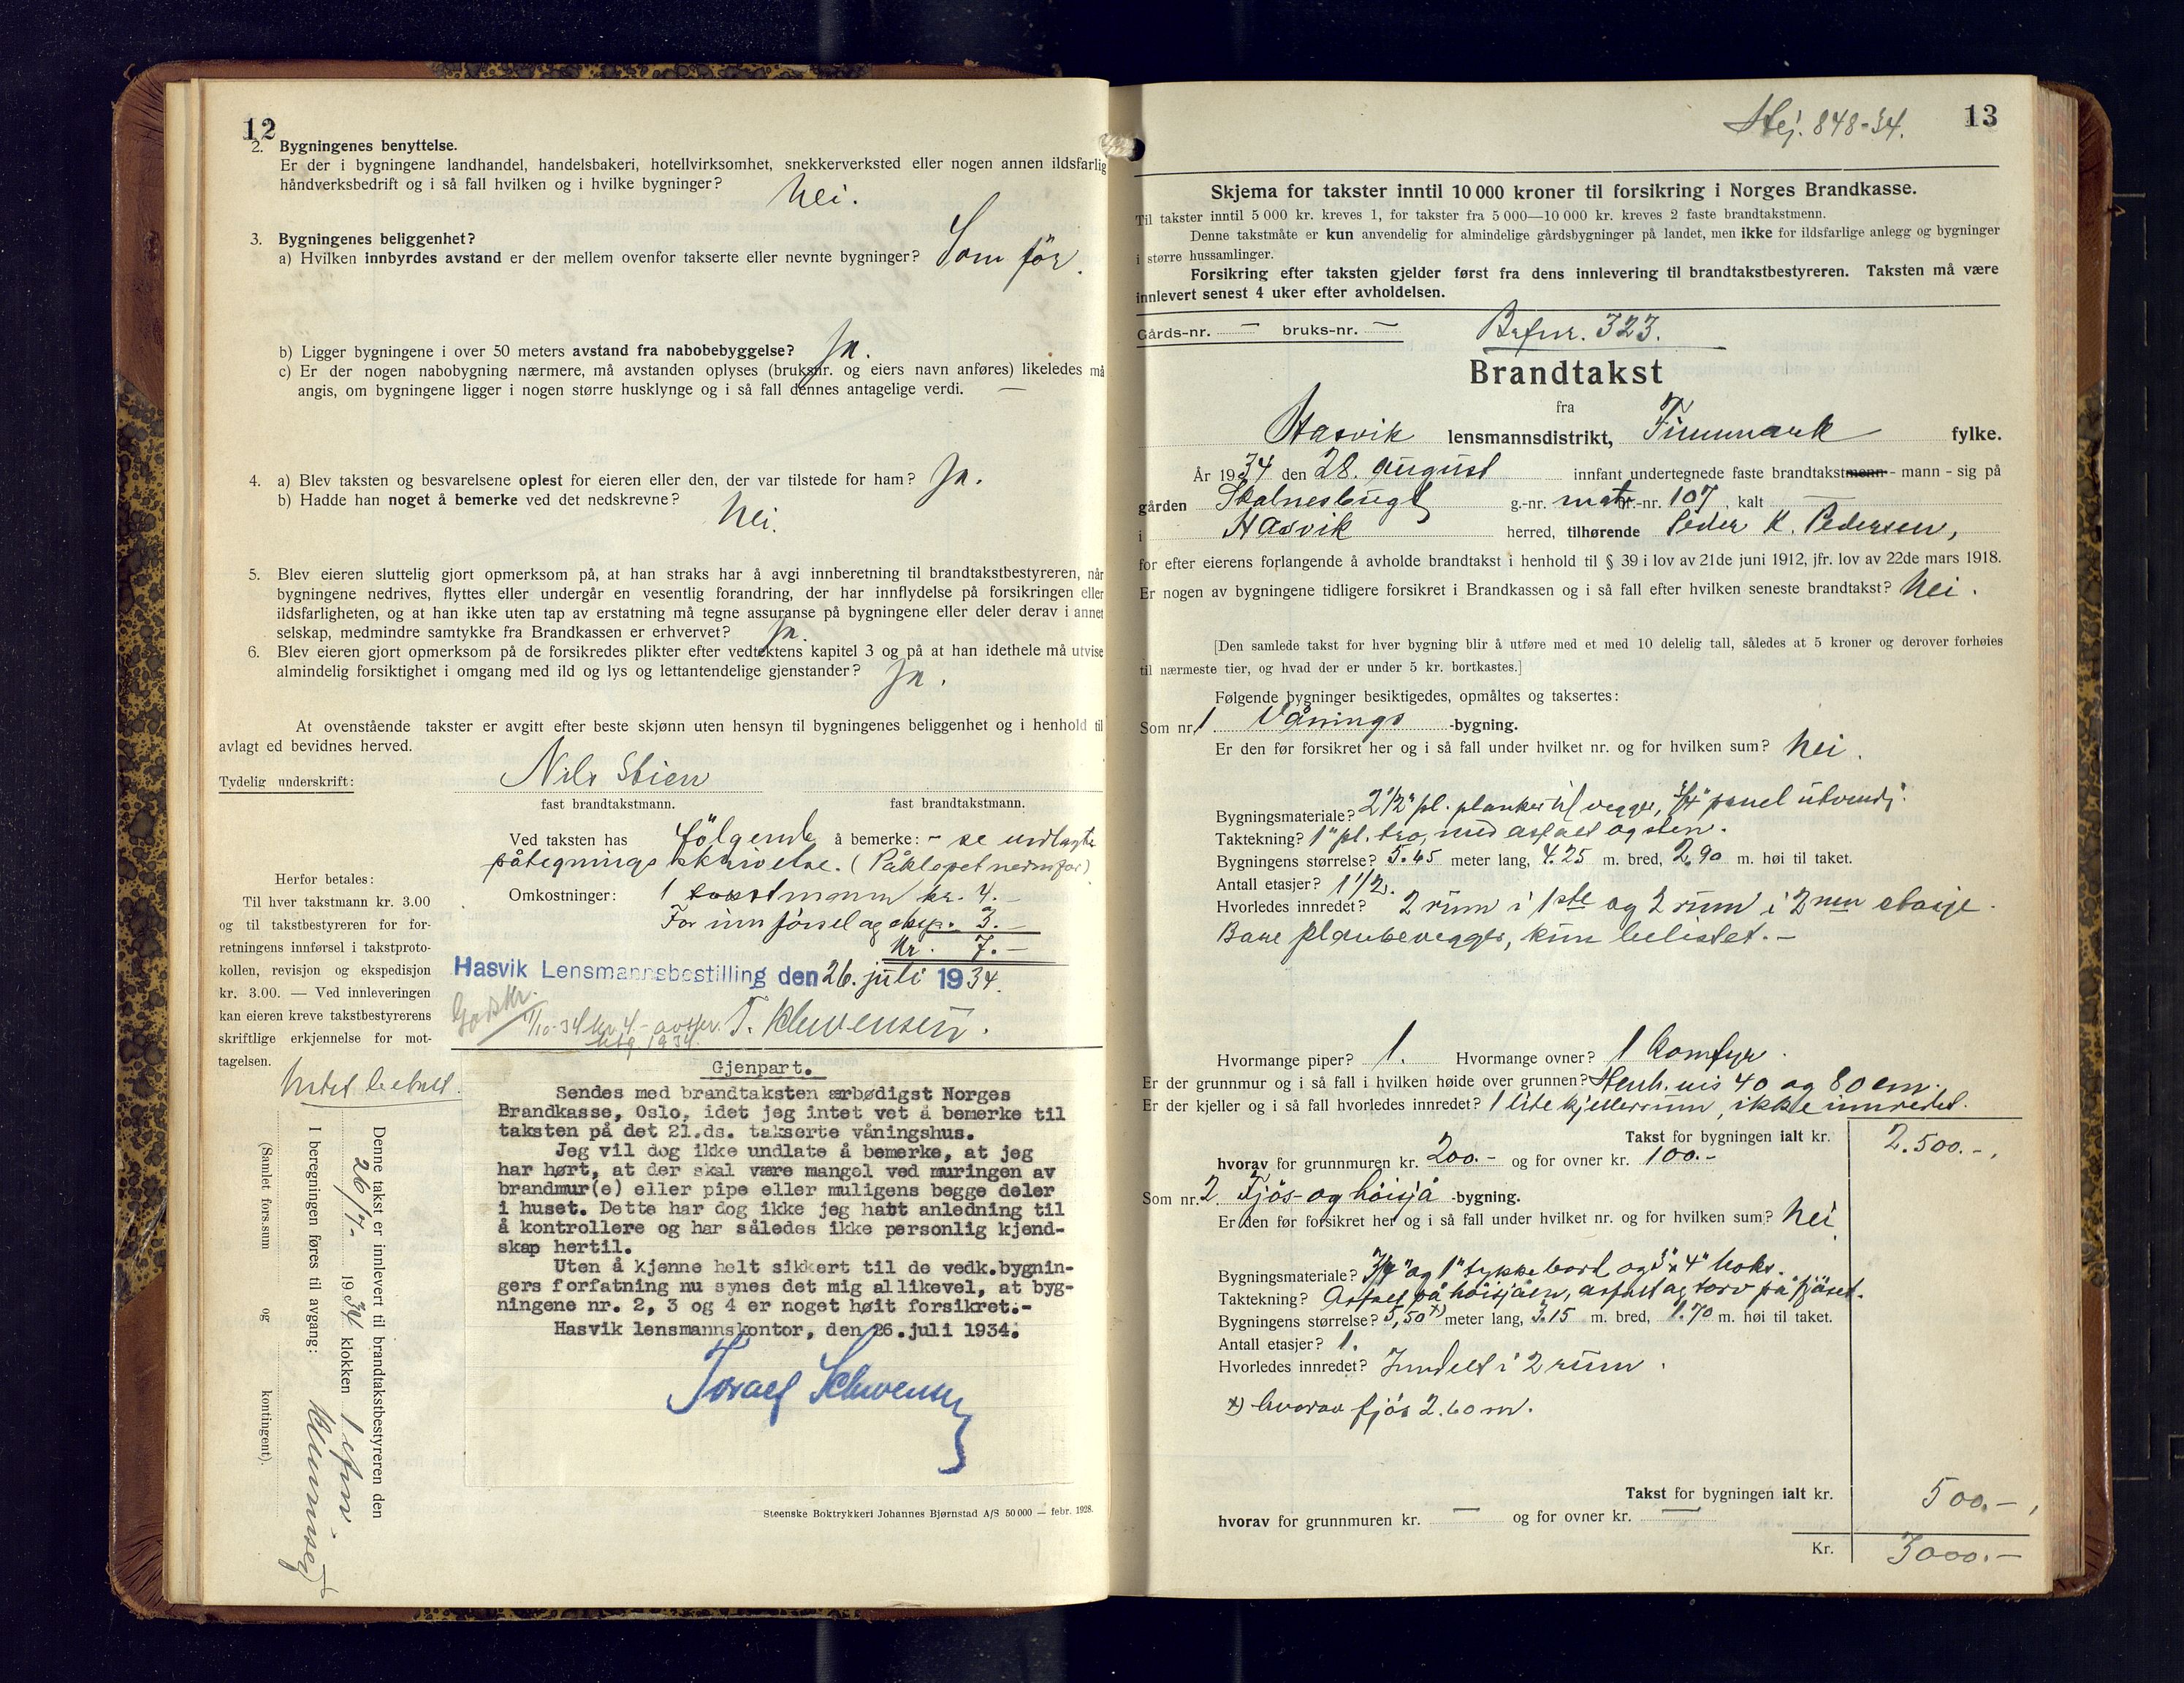 12
2. Bygningenes benyttelse.
Er der i bygningene landhandel, handelsbakeri, hotellvirksomhet, snekkerverksted eller nogen annen ildsfarlig
håndverksbedrift og i så fall hvilken og i hvilke bygninger? Nei.
3. Bygningenes beliggenhet?
a) Hvilken innbyrdes avstand er der mellem ovenfor takserte eller nevnte bygninger? Som før.
b) Ligger bygningene i over 50 meters avstand fra nabobebyggelse? Ja.
c) Er der nogen nabobygning nærmere, må avstanden oplyses (bruksnr. og eiers navn anføres) likeledes må
angis, om bygningene ligger i nogen større husklynge og i så fall dennes antagelige verdi. —
4. a) Blev taksten og besvarelsene oplest for eieren eller den, der var tilstede for ham? Ja.
b) Hadde han noget å bemerke ved det nedskrevne? Nei.
5. Blev eieren sluttelig gjort opmerksom på, at han straks har å avgi innberetning til brandtakstbestyreren, når
bygningene nedrives, flyttes eller undergår en vesentlig forandring, der har innflydelse på forsikringen eller
ildsfarligheten, og at han ikke uten tap av erstatning må tegne assuranse på bygningene eller deler derav i annet
selskap, medmindre samtykke fra Brandkassen er erhvervet? Ja.
6. Blev eieren gjort opmerksom på de forsikredes plikter efter vedtektens kapitel 3 og på at han idethele må utvise
almindelig forsiktighet i omgang med ild og lys og lettantendelige gjenstander? Ja.
At ovenstående takster er avgitt efter beste skjønn uten hensyn til bygningenes beliggenhet og i henhold til
avlagt ed bevidnes herved.
Tydelig underskrift: Nils Stien
fast brandtakstmann. fast brandtakstmann.
Ved taksten has følgende å bemerke: - se undlagte
påtegningsskrivelse. (Påklepet nedenfor)
Omkostninger: 1 takstmann kr. 4.-
For innførsel og eksp. 3.-
Kr. 7.-
Hasvik Lensmannsbestilling den 26. juli 1934.
T. Schwensen.
Herfor betales:
Til hver takstmann kr. 3.00
og til takstbestyreren for for-
retningens innførsel i takstproto-
kollen, revisjon og ekspedisjon
kr. 3.00. — Ved innleveringen
kan eieren kreve takstbestyrerens
skriftlige erkjennelse for mot-
tagelsen.
Intet betalt.
Gjenpart.
Sendes med brandtaksten ærbødigst Norges
Brandkasse, Oslo, idet jeg intet vet å bemerke til
taksten på det 21.ds. takserte våningshus.
Jeg vil dog ikke undlate å bemerke, at jeg
har hørt, at der skal være mangel ved muringen av
brandmur(e) eller pipe eller muligens begge deler
i huset. Dette har dog ikke jeg hatt anledning til
å kontrollere og har således ikke personlig kjend-
skap hertil.
Uten å kjenne helt sikkert til de vedk.bygnin-
gers forfatning nu synes det mig allikevel, at byg-
ningene nr. 2, 3 og 4 er noget høit forsikret.-
Hasvik lensmannskontor, den 26.juli 1934.
Denne takst er innlevert til brandtakstbestyreren den
26/7- 1934 klokken 1 efm
I beregningen føres til avgang:
(Samlet fors.sum og kontingent).
Steenske Boktrykkeri Johannes Bjørnstad A/S 50 000 — febr. 1928.
Hej. 848-34. 13
Skjema for takster inntil 10 000 kroner til forsikring i Norges Brandkasse.
Til takster inntil 5 000 kr. kreves 1, for takster fra 5 000—10 000 kr. kreves 2 faste brandtakstmenn.
Denne takstmåte er kun anvendelig for almindelige gårdsbygninger på landet, men ikke for ildsfarlige anlegg og bygninger
i større hussamlinger.
Forsikring efter taksten gjelder først fra dens innlevering til brandtakstbestyreren. Taksten må være
innlevert senest 4 uker efter avholdelsen.
Gårds-nr. — bruks-nr. — Brfnr. 323.
Brandtakst
fra
Hasvik lensmannsdistrikt, Finnmark fylke.
År 1934 den 28. august innfant undertegnede faste brandtakstmenn - mann - sig på
gården Skalnesbugt g.-nr. matr br.-nr. 107, kalt —
i Hasvik herred, tilhørende Peder K. Pedersen,
for efter eierens forlangende å avholde brandtakst i henhold til § 39 i lov av 21de juni 1912, jfr. lov av 22de mars 1918.
Er nogen av bygningene tidligere forsikret i Brandkassen og i så fall efter hvilken seneste brandtakst? Nei.
[Den samlede takst for hver bygning blir å utføre med et med 10 delelig tall, således at 5 kroner og derover forhøies
til nærmeste tier, og hvad der er under 5 kr. bortkastes.]
Følgende bygninger besiktigedes, opmåltes og taksertes:
Som nr. 1 Vånings -bygning.
Er den før forsikret her og i så fall under hvilket nr. og for hvilken sum? Nei.
Bygningsmateriale? 2 1/2" pl. planker til vegger, 3/4" panel utvendi.
Taktekning? 1" pl. tro, med asfalt og sten.
Bygningens størrelse? 5.45 meter lang, 4.25 m. bred, 2,90 m. høi til taket.
Antall etasjer? 1 1/2.
Hvorledes innredet? 2 rum i 1ste og 2 rum i 2nen etasje.
Bare plankevegger, kun belistet.-
Hvormange piper? 1. Hvormange ovner? 1 komfyr.
Er der grunnmur og i så fall i hvilken høide over grunnen? Henh. vis 40 og 80 cm.
Er der kjeller og i så fall hvorledes innredet? 1 lite kjellerrum, ikke innredet.
Takst for bygningen ialt kr. 2.500.-,
hvorav for grunnmuren kr. 200.- og for ovner kr. 100.-
Som nr. 2 Fjøs- og høisjå -bygning.
Er den før forsikret her og i så fall under hvilket nr. og for hvilken sum? Nei
Bygningsmateriale? 3/4" og 1" tykke bord og 3" x 4" boks.
Taktekning? Asfalt på høisjåen, asfalt og torv på fjøset.
Bygningens størrelse? 5,50 x) meter lang, 3.15 m. bred, 1.70 m. høi til taket.
Antall etasjer? 1.
Hvorledes innredet? Inndelt i 2 rum.
x) hvorav fjøs 2.60 m.
Takst for bygningen ialt kr. 500.-,
hvorav for grunnmuren kr. — og for ovner kr. —
Kr. 3000.-